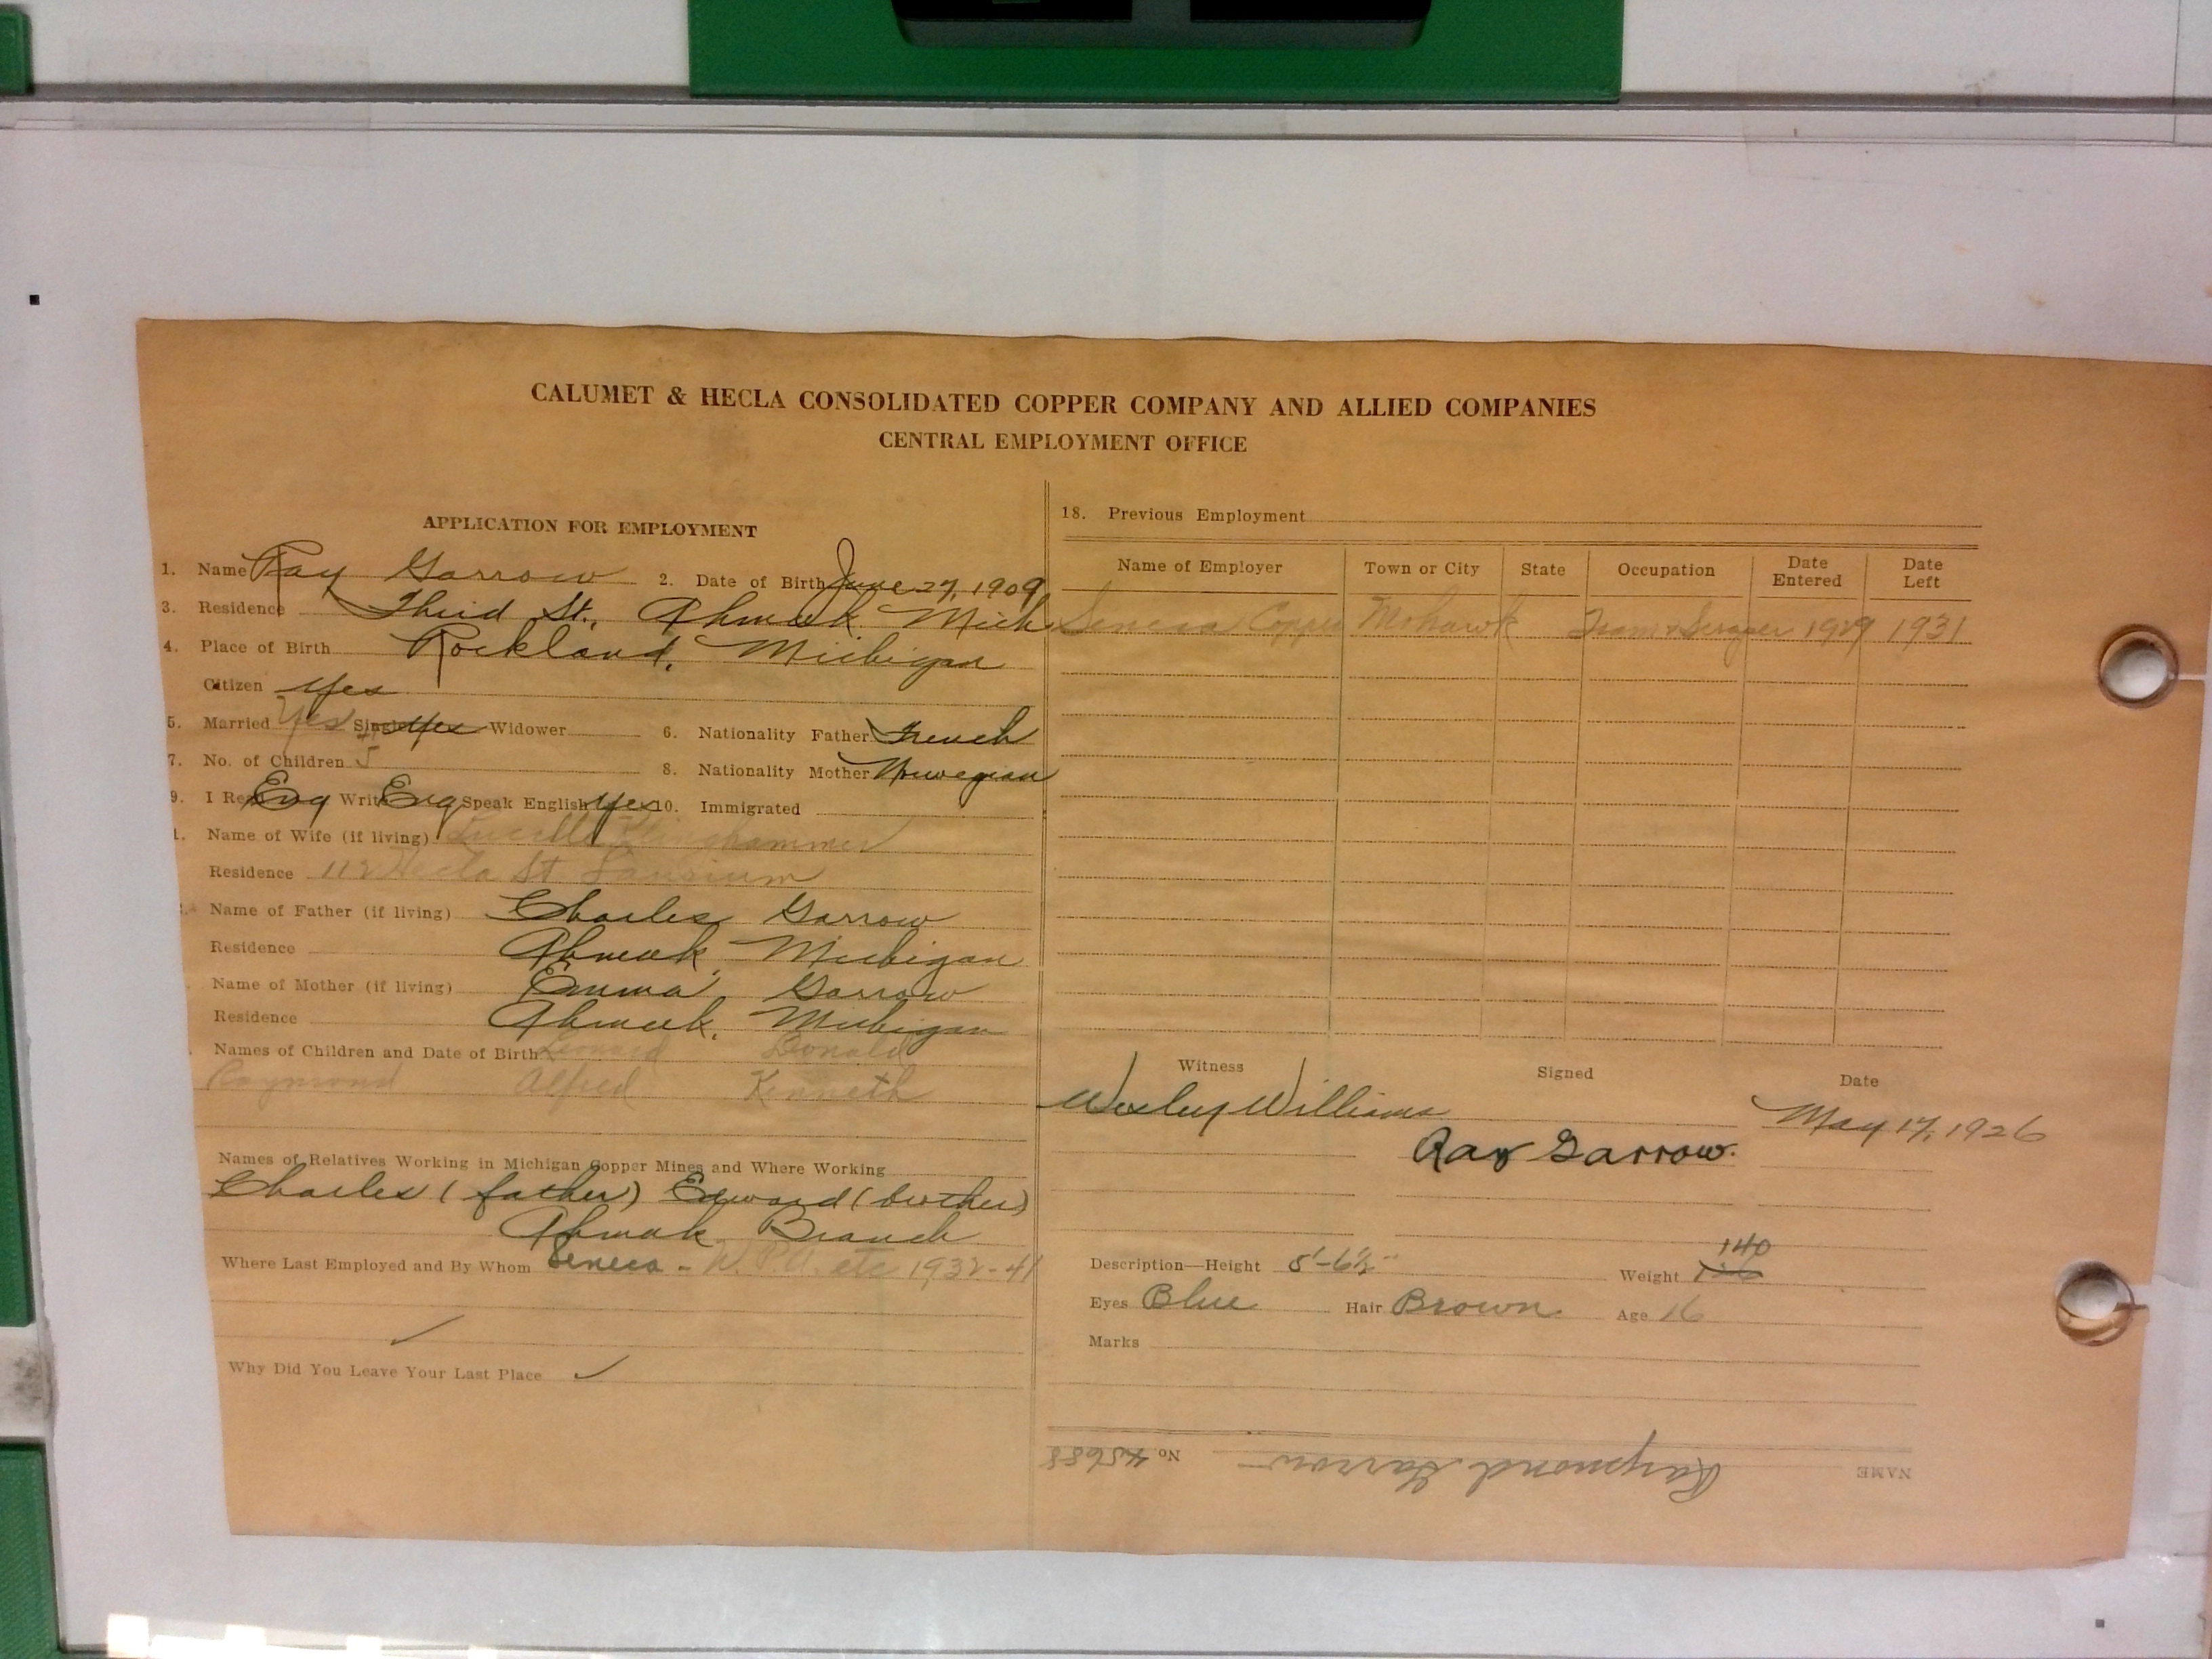 CALUMET & HECLA CONSOLIDATED COPPER COMPANY AND ALLIED COMPANIES
CENTRAL EMPLOYMENT OFFICE
APPLICATION FOR EMPLOYMENT
1. Name Ray Garrow 2. Date of Birth June 27, 1909
3. Residence Third St., Ahmeek Mich
4. Place of Birth Rockland, Michigan
Citizen Yes
5. Married Yes Single Yes Widower 6. Nationality Father French
7. No. of Children 5 8. Nationality Mother Norwegian
9. I Read Eng Write Eng Speak English Yes 10. Immigrated
1. Name of Wife (if living) Lucille
Residence 112 Hecla St Laurium
Name of Father (if living) Charles Garrow
Residence Ahmeek, Michigan
Name of Mother (if living) Emma Garrow
Residence Ahmeek, Michigan
Names of Children and Date of Birth Leonard Donald
Raymond Alfred Kenneth
Names of Relatives Working in Michigan Copper Mines and Where Working
Charles (father) Edward (brother)
Ahmeek Branch
Where Last Employed and By Whom Seneca - W.P.A. etc 1932-41
Why Did You Leave Your Last Place
18. Previous Employment
Name of Employer Town or City State Occupation Date Entered Date Left
Seneca Copper Mohawk Tram & 1929 1931
Witness Signed Date
Wesley Williams May 17, 1926
Ray Garrow.
Description—Height 5'-6½" Weight 126 140
Eyes Blue Hair Brown Age 16
Marks
NAME Raymond Garrow No 45688